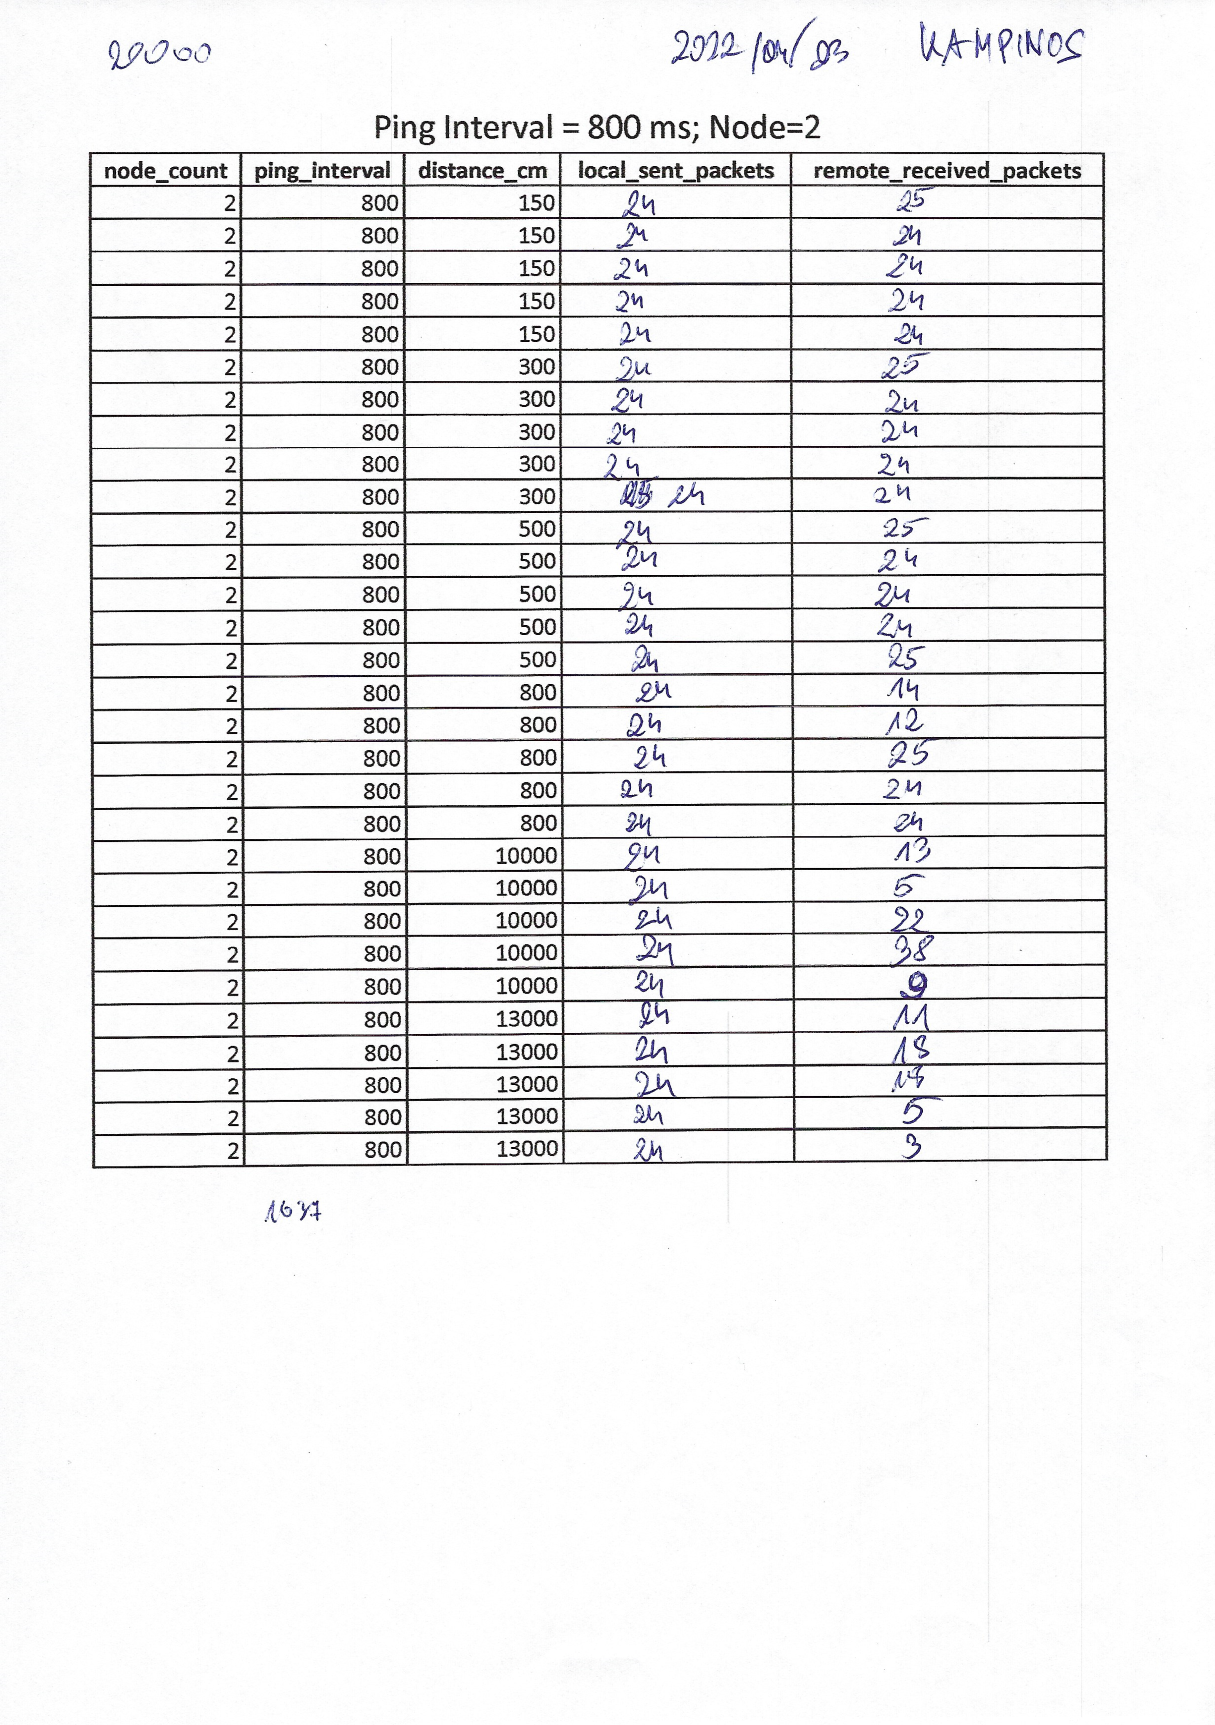 20000 2022/04/03 KAMPINOS
Ping Interval = 800 ms; Node=2
node_count ping_interval distance_cm local_sent_packets remote_received_packets
2 800 150 24 25
2 800 150 24 24
2 800 150 24 24
2 800 150 24 24
2 800 150 24 24
2 800 300 24 25
2 800 300 24 24
2 800 300 24 24
2 800 300 24 24
2 800 300 24 24
2 800 500 24 25
2 800 500 24 24
2 800 500 24 24
2 800 500 24 24
2 800 500 24 25
2 800 800 24 14
2 800 800 24 12
2 800 800 24 25
2 800 800 24 24
2 800 800 24 24
2 800 10000 24 13
2 800 10000 24 5
2 800 10000 24 22
2 800 10000 24 38
2 800 10000 24 9
2 800 13000 24 11
2 800 13000 24 18
2 800 13000 24
2 800 13000 24 5
2 800 13000 24 3
1637